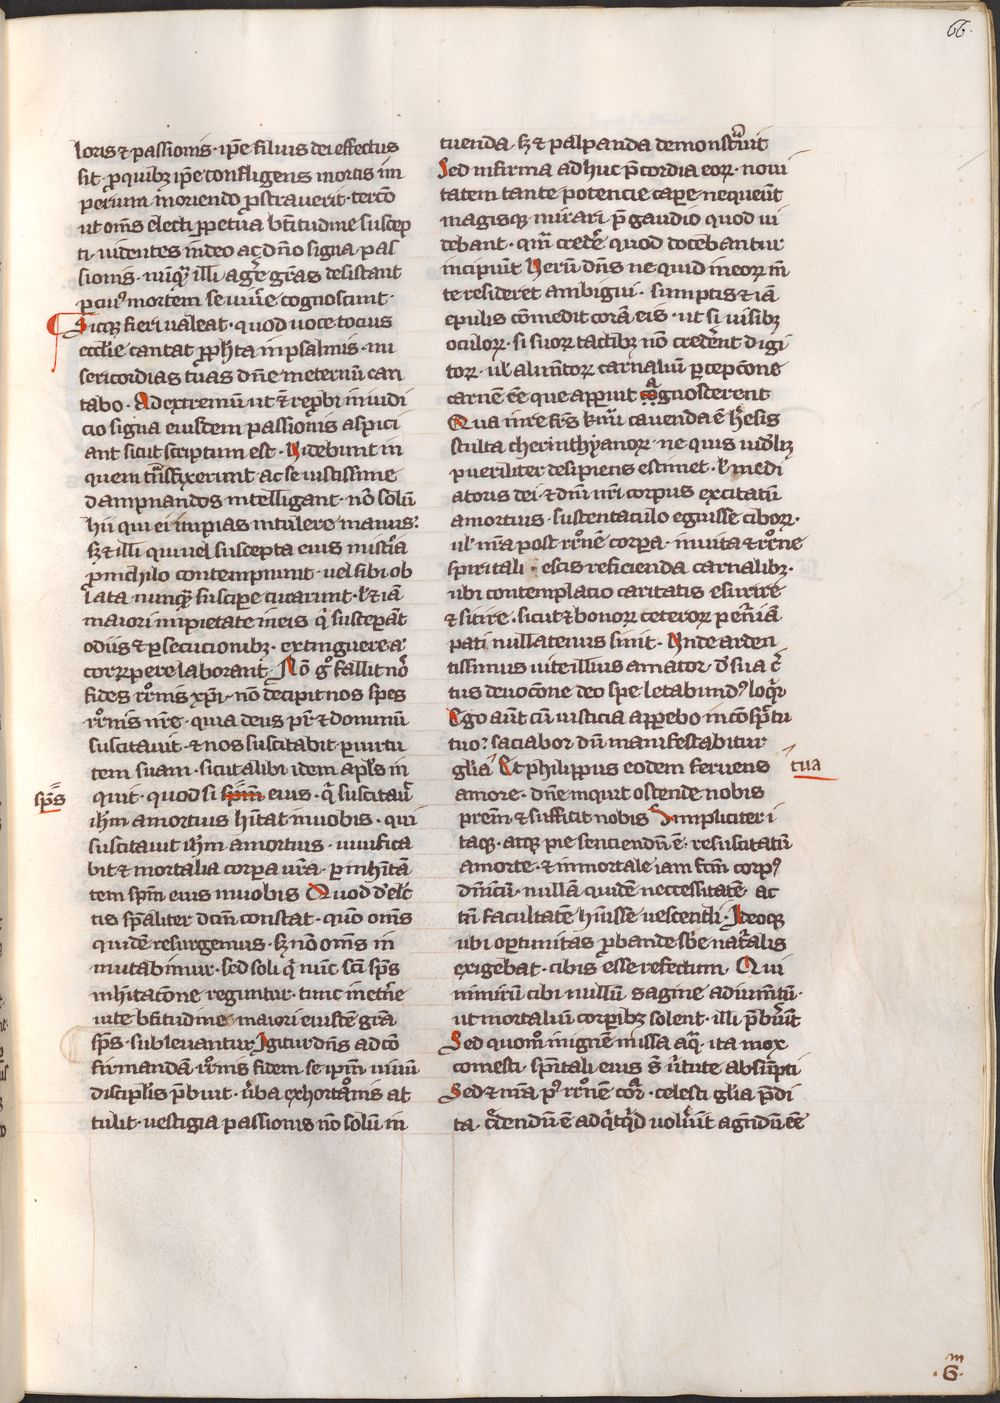 66.
loris ⁊ passionis · ip̄e filius dei effectus
sit · ꝓ quibꝫ ip̄e confligens mortis im
perium moriendo ꝓstrauerit · tercō
ut om̄s electi ꝑpetua btītudine suscep
ti · uidentes in deo ac dn̄o signa pas
sionis · nūqͣ illi agēr grās desistant
ꝑ cuiꝰ mortem se uiuēre cognoscunt ·
Sicqꝫ fieri ualeat · quod uoce tocius
ecclīe cantat ꝓph̄ta in psalmis · mi
sericordias tuas dn̄e in eternū can
tabo · Ad extremū ut ⁊ rep̄bi in iudi
cio signa eiusdem passionis aspici
ant sicut scriptum est · Videbunt in
quem tn̄sfixerunt ac se iustissime
dampnandos intelligant · nō solū
hii qui ei impias intulere manus ·
sꝫ ⁊ illi qui uel suscepta eius mist̄ia
ꝓ nichilo contempnunt · uel sibi ob
lata nunqͣ suscipe curarunt · sꝫ ⁊ iā
maiori impietate in eis qͥ susceperāt
odiis ⁊ ꝑsecucionibꝫ · extinguere ac
corrꝑpere laborant · Nō gͦ fallit nō
fides r̄rōnis xp̄i · nō decipit nos spes
r̄rōnis nr̄e · quia deus pr̄ ⁊ dominū
suscitauit · ⁊ nos suscitabit ꝑ uirtu
tem suam · sicut alibi idem apl̄s in
quit · quod si sp̄m eius · qͥ suscitauͭ
sp̄s
ih̄m a mortuis h̄itat in uobis · qui
suscitauit ih̄m a mortuis · uiuifica
bit ⁊ mortalia corpa ur̄a · ꝑ inh̄itā
tem sp̄m eius in uobis Quod d' elc̄
tis sp̄aliter dc̄m constat · qm̄ om̄s
quidē resurgemus · sꝫ nō om̄s in
mutabimur · sed soli qͥ nūc sc̄i sp̄s
inh̄itacōne reguntur · tunc in et̄ne
uite btītudine maiori eiusdē grā
sp̄s · subleuantur Igitur dn̄s ad cō
firmandā r̄rōnis fidem se ip̄m uiuū
discipl̄is p̄buit · ūba exhortacōnis at
tulit · uestigia passionis nō solū in
tuenda · sꝫ ⁊ palpanda demonstͣuit
Sed infirma adhuc p̄cordia eoꝝ · noui
tatem tante potencie cape nequeūt
magisqꝫ mirari p̄ gaudio quod ui
debant · qm̄ credēr quod docebantur
incipiūt Verū dn̄s ne quid in eoꝝ m̄
te resideret ambigui · sumptis ⁊ iā
epulis cōmedit corā eis · ut si uisibꝫ
oculoꝝ · si suoꝝ tactibꝫ nō crederēt digi
toꝝ · ul' alimētoꝝ carnaliū ꝑcepcōne
carnē eē que apparuit cognoscerent
Qua in re frēs kmi cauenda ē h̄esis
stulta cherinthyanoꝝ · ne quis uidelꝫ
pueriliter desipiens estimet · ul' medi
atoris dei · ⁊ dn̄i nr̄i corpus excitatū
a mortuis · sustentaculo eguisse ciboꝝ ·
ul' nr̄a post r̄rōnē corpa · in uita ⁊ r̄rōne
spiritali · escis reficienda carnalibꝫ ·
ubi contemplacio caritatis esurire
⁊ sitire · sicut ⁊ bonoꝝ ceteroꝝ penūiā
pati nullatenus sinit · Vnde arden
tissimus uite illius amator · d' sua c̄
tus deuocōne deo spe letabundꝰ loqͥr
Ego aūt cū iusticia apparebo in cōspc̄tu
tuo · saciabor dū manifestabitur
gl̄ia Et philippus eodem feruens
tua
amore · dn̄e inquit ostende nobis
prēm ⁊ sufficit nobis Simpliciter i
taqꝫ · atqꝫ pie senciendū ē · resuscitatū
a morte · ⁊ in mortale iam fc̄m corpꝰ
dn̄icū · nullā quidē necessitatē · ac
tn̄ facultatē h̄uisse uescendi · Ideoqꝫ
ubi oportunitas ꝓbande sb̄e naͭralis
exigebat · cibis esse refectum · Qui
nimirū cibi nullū sagine adiumētū ·
ut mortaliū corpibꝫ solent · illi p̄bueūt
Sed quom̄ in ignē missa aqͣ · ita mox
comesti · sp̄itali eius sūt ūtute absūpti
Sed ⁊ nr̄a pꝰ r̄rōnē corͣ · celesti gl̄ia p̄di
ta · c̄dendū ē ad qͥcqͥd uolueīt agn̄dū eē
m
· 6 ·